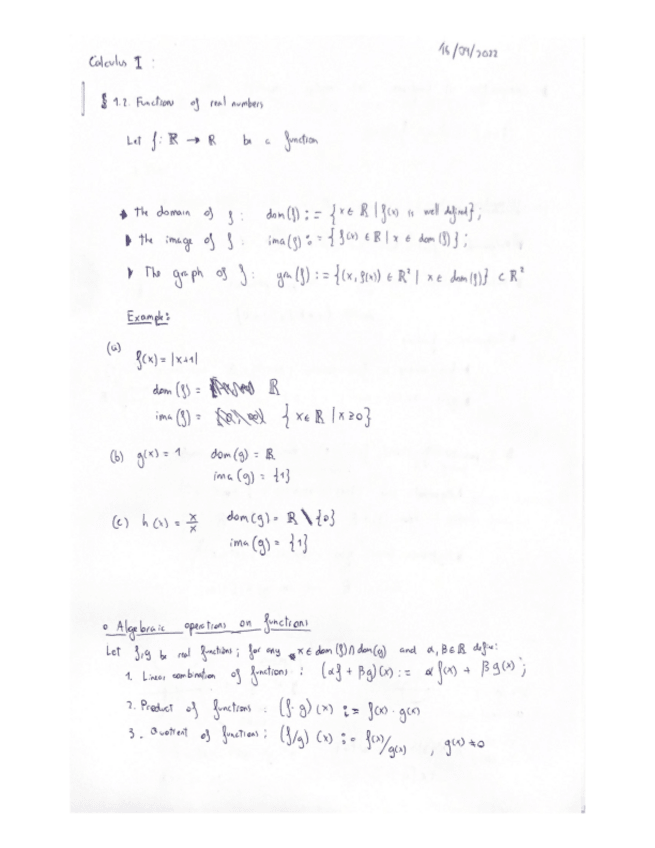 16/09/2022
Calculus I :
§ 1.2. Functions of real numbers
Let f: ℝ → ℝ be a function
▸ The domain of f : dom(f) := {x ∈ ℝ | f(x) is well defined};
▸ the image of f : ima(f) := {f(x) ∈ ℝ | x ∈ dom(f)};
▸ The graph of f : gra(f) := {(x, f(x)) ∈ ℝ² | x ∈ dom(f)} ⊂ ℝ²
Example:
(a)
f(x) = |x+1|
dom(f) = ℝ
ima(f) = {x ∈ ℝ | x ≥ 0}
(b) g(x) = 1 dom(g) = ℝ
ima(g) = {1}
(c) h(x) = x/x dom(g) = ℝ \ {0}
ima(g) = {1}
o Algebraic operations on functions
Let f,g be real functions; for any x ∈ dom(f) ∩ dom(g) and α, β ∈ ℝ define:
1. Linear combination of functions : (αf + βg)(x) := αf(x) + βg(x) ;
2. Product of functions : (f·g)(x) := f(x) · g(x)
3. Quotient of functions ; (f/g)(x) := f(x)/g(x) , g(x) ≠ 0